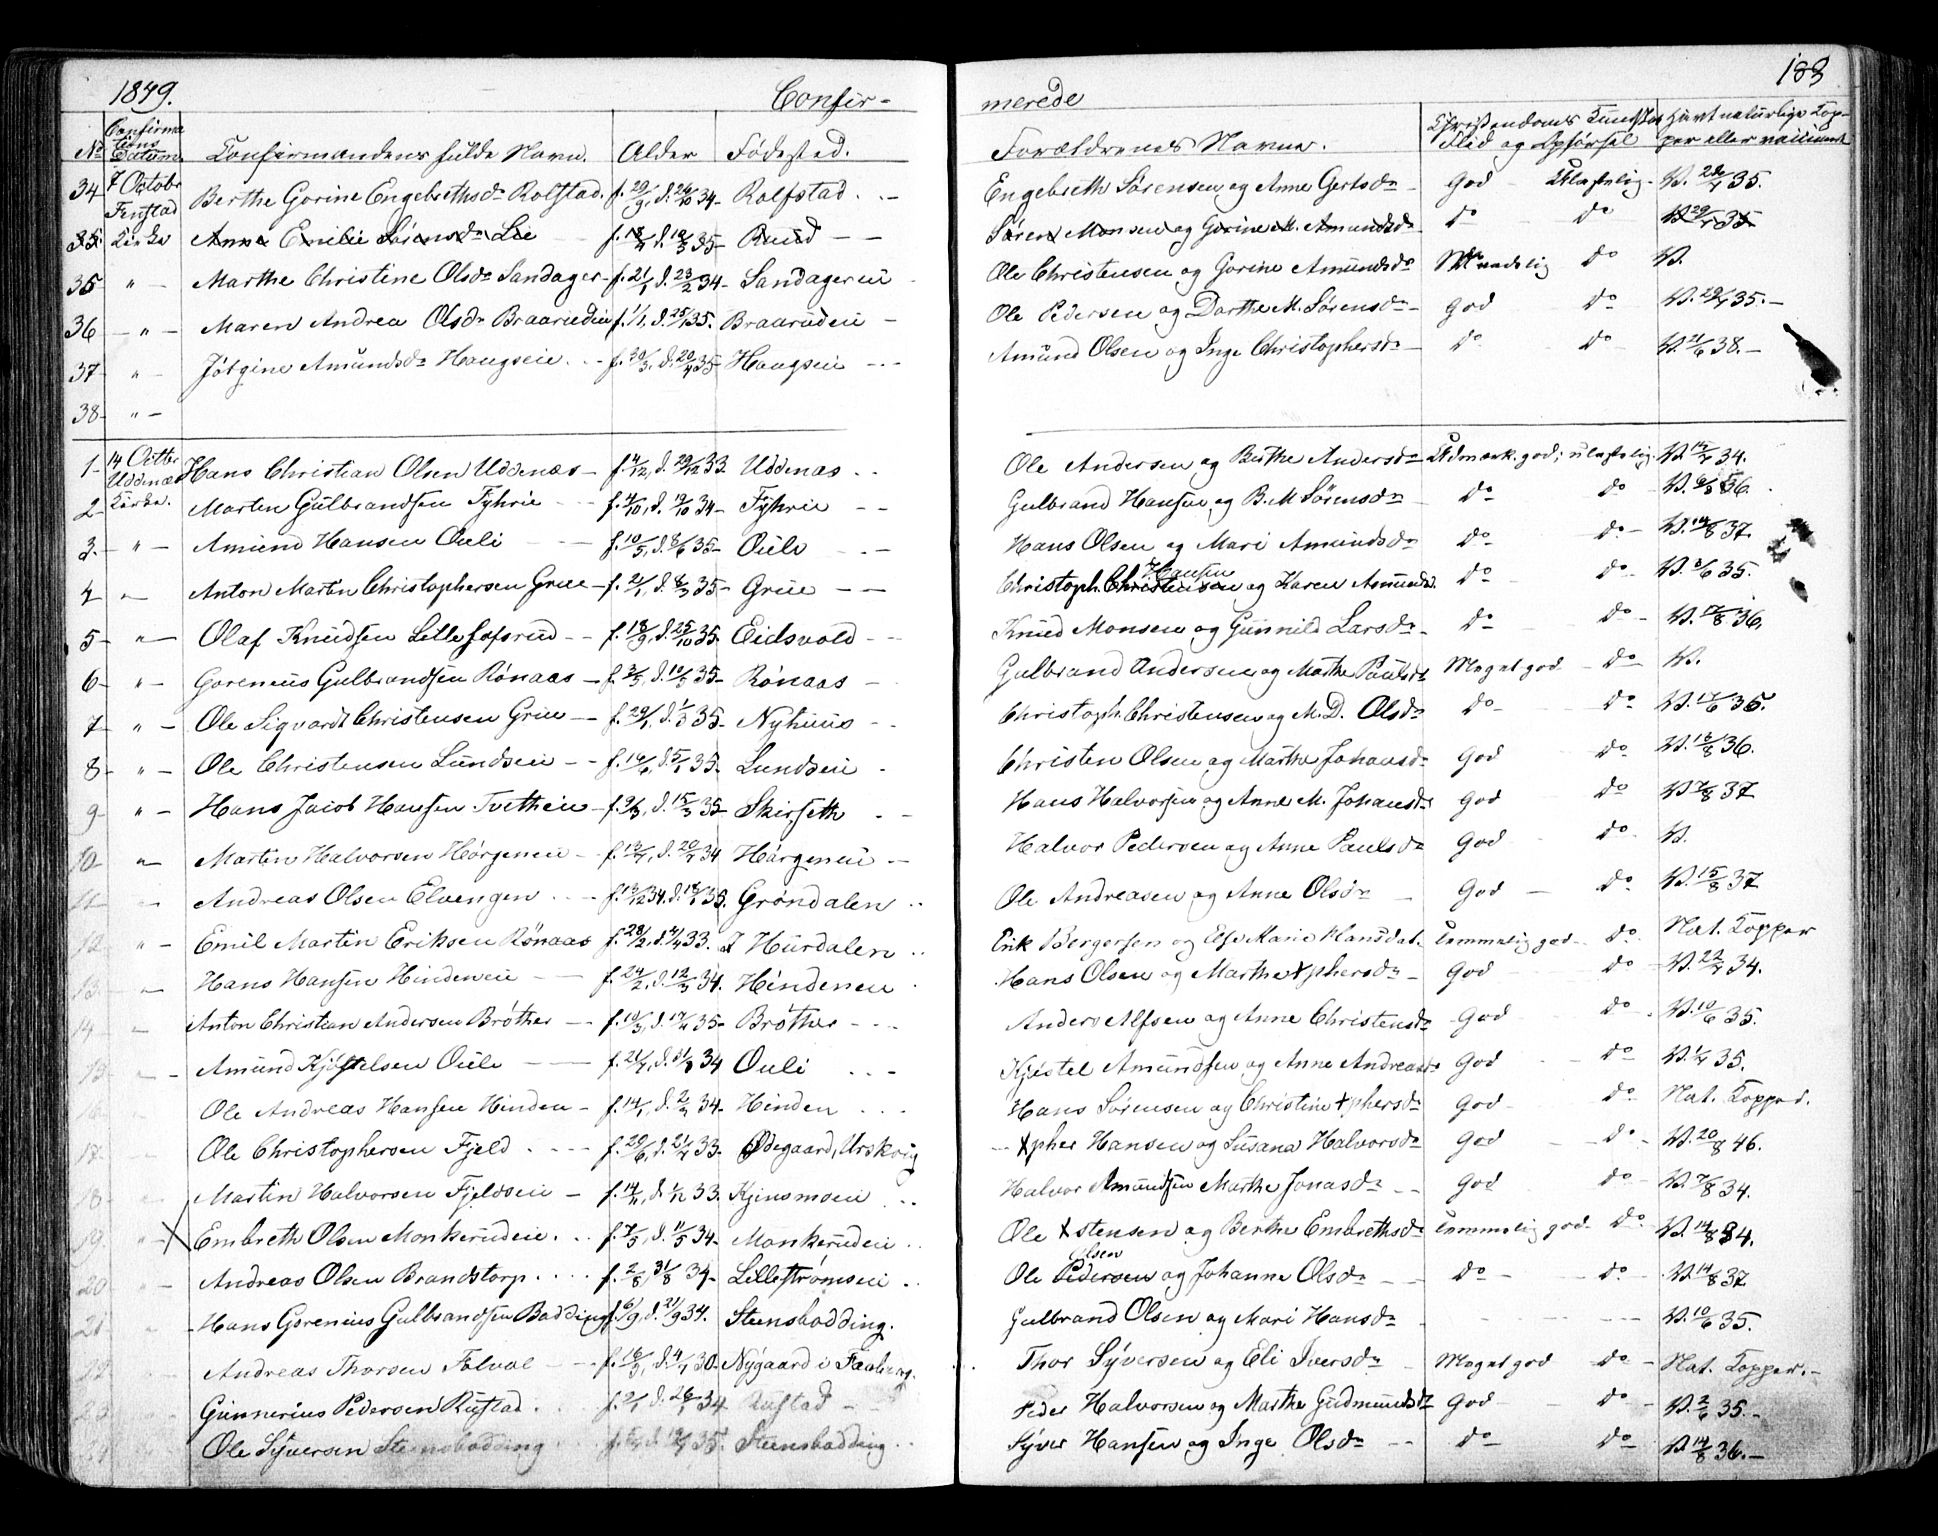 1849. Confir- merede 183
No Confirmations Datum Confirmandens fulde Navn. Alder Fødested. Forældrenes Navne. Christendoms Kundskab Flid og Opførsel Havt naturlige Kopper eller vaccineret
34 7 Octobr Fenstad Berthe Gorine Engebrethsdr Rolfstad. f. 29/9, d. 26/10 34 Rolfstad Engebreth Sørensen og Anne Gertsdr God Ulastelig V. 35.
35 Kirke Anne Emilie Sørensdr Lie f. d. 19/3 35 Ruud Søren Monsen og Gorine M. Amundsdr do do V. 35
35 " Marthe Christine Olsdr Sandager f. 21/1 d. 23/2 34 Sandagereie Ole Christensen og Gorine Amundsdr do V.
36 " Maren Andrea Olsdr Braarudeie f. 1/1, d. 25/1 35. Braarudeie Ole Pedersen og Dorthe M. Sørensdr God do V. 29/7 35.
37 " Jørgine Amundsdr Haugseie f. 30/3, d. 20/4 35 Haugseie Amund Olsen og Inge Christophersdr do do V. 21/6 38.
38 "
1 14 Octbr Uddenæs Hans Christian Olsen Uddenæs f. 4/12, d. 29/12 33 Uddenæs Ole Andersen og Berthe Andersdr Udmærk. god; ulastelig V. 34.
2 Kirke. Martin Gulbrandsen Fyhrie f. 4/10, d. 19/10 34 Fyhrie Gulbrand Hansen og B. M Sørensdr do do V. 36.
3. " Amund Hansen Ouli f. 10/5, d. 8/6 35 Oule Hans Olsen og Mari Amundsdr do do V. 14/8 37.
4 " Anton Martin Christophersen Grue f. 2/1, d. 8/3 35 Grue Christoph. Christensen Hansen og Karen Amunds. do do V. 35.
5 " Olaf Knudsen Lillehofsrud f. 18/9, d. 25/10 35. Eidsvold Knud Monsen og Gunnild Larsdr do do V. 17/8 36.
6 " Gorenius Gulbrandsen Rønaas f. 3/3, d. 35 Rønaas Gulbrand Andersen og Marthe Paulsd. Meget god do V.
7 " Ole Sigvardt Christensen Grue f. 29/1, d. 1/3 35 Nyhuus Christoph. Christensen og M. D. Olsdr do do V. 17/6 36.
8 " Ole Christensen Lundseie f. d. 5/1 35. Lundseie Christen Olsen og Marthe Johansdr God do V. 18/8 36.
9 " Hans Jacob Hansen Tvetheie f. 9/3, d. 15/3 35 Skirseth Hans Halvorsen og Anne M. Johansdr God do V. 7/8 37
10 " Martin Halvorsen Hørgeneie f. d. 34 Hørgeneie Halvor Pedersen og Anne Paulsdr God do V.
11 " Andreas Olsen Elvengen f. 13/12 34. d. 18/1 35. Grøndalen Ole Andreasen og Anne Olsdr God do V. 15/8 37
12 " Emil Martin Eriksen Rønaas f. 28/2, d. 4/4 33. I Hurdalen Erik Børgersen og Else Marie Hansdat. temmelig god do Nat. Kopper
13 " Hans Hansen Hindeneie f. 24/2, d. 12/3 34. Hindeneie Hans Olsen og Marthe Xphersdr God do V. 34.
14 " Anton Christian Andersen Brøther f. 10/3, d. 17/4 35 Brøther Anders Alfsen og Anne Christensdr God do V. 10/6 35.
15 " Amund Kjøstelsen Oule f. d. 34 Ouli Kjøstel Amundsen og Anne Andreasdr God do V. 35.
16 " Ole Andreas Hansen Hinden f. 14/1, d. 2/2 34. Hinden Hans Sørensen og Christine Xphersdr God do Nat. Kopper.
17 " Ole Christophersen Fjeld f. 29/6, d. 21/7 33. Ødegaard, Urskoug Xpher Hansen og Susana Halvorsdr God do V. 20/8 46.
18 " Martin Halvorsen Fjeldseie f. 14/11, d. 1/12 33. Kjinsmoeie Halvor Amundsen Marthe Jonasdr God do V. 7/8 34.
19 " X Embreth Olsen Monkerudeie f. 7/5, d. 11/5 34 Monkerudeie Ole Xstensen og Berthe Embrethsdr temmelig god do V. 14/8 34.
20 " Andreas Olsen Brandstorp f. 2/8, 31/8 34 Lillestrømseie Ole Olsen Pedersen og Johanne Olsdr do do V. 14/8 37
21 " Hans Gorenius Gulbrandsen Bodding f. 6/9, d. 21/9 34. Steensbodding. Gulbrand Olsen og Mari Hansdr V. 10/6 35.
22 Andreas Thorsen Folval f. 16/3, d. 4/4 30 Nygaard i Thor Syversen og Eli Iversdr Meget god do Nat. Kopper.
23 Gunnerius Pedersen Rustad f. d. 26/1 34 Rustad Peder Halvorsen og Marthe Gudmundsdr God do V. 2/6 35.
24 Ole Syversen Steensbodding f. d. 35 Steensbodding Syver Hansen og Inge Olsdr do do V. 14/8 36.